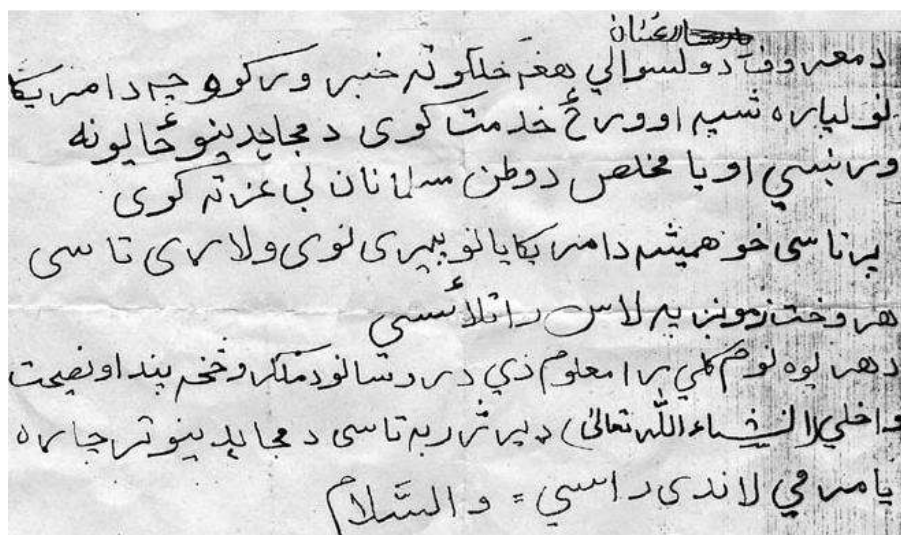 د معروف د ولسوالي هغه خلکو ته خبر ورکوو چه د امریکا
لو لپاره شپه او ورځ خدمت کوی د مجاهدینو ځایونه
ور ښیي او با مخلص د وطن مسلمانان بی عزته کوی
پر تاسی خو همیشه د امریکایانو پهری نوی ولاړی تاسی
هر وخت زمونږ په لاس راتلائسی
د هر یوه نوم کلي پرا معلوم دي د روشانو د ملګروڅخه پند او نصیحت
واخلي (انشاءالله تعالی) ډیر ژر به تاسی د مجاهدینو تر چاړه
یا مرمي لاندی راسي = والسّلام